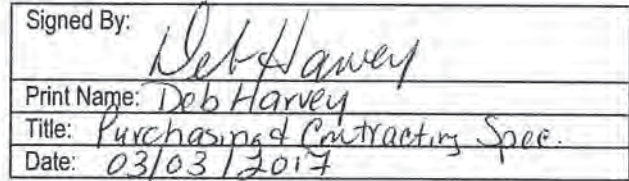 Signed By: Deb Harvey
Print Name: Deb Harvey
Title: Purchasing & Contracting Spec.
Date: 03/03/2017